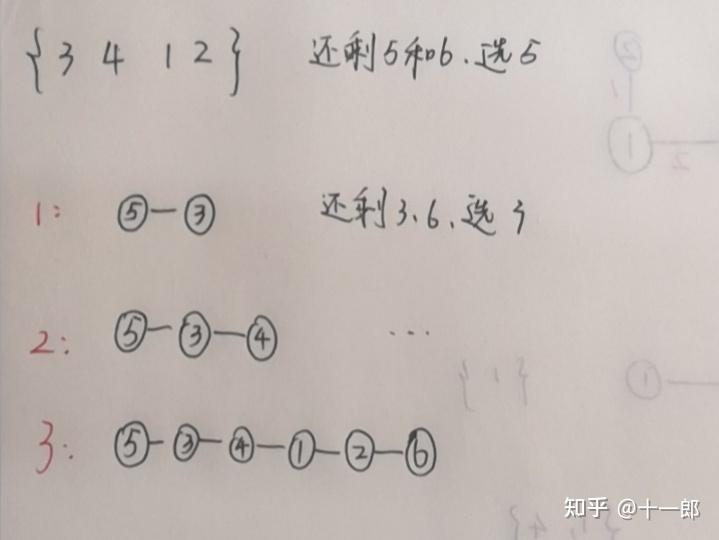 {3 4 1 2} 还剩5和6.选5
1: ⑤—③ 还剩3、6、选3
2: ⑤—③—④ ...
3: ⑤—③—④—①—②—⑥
知乎 @十一郎